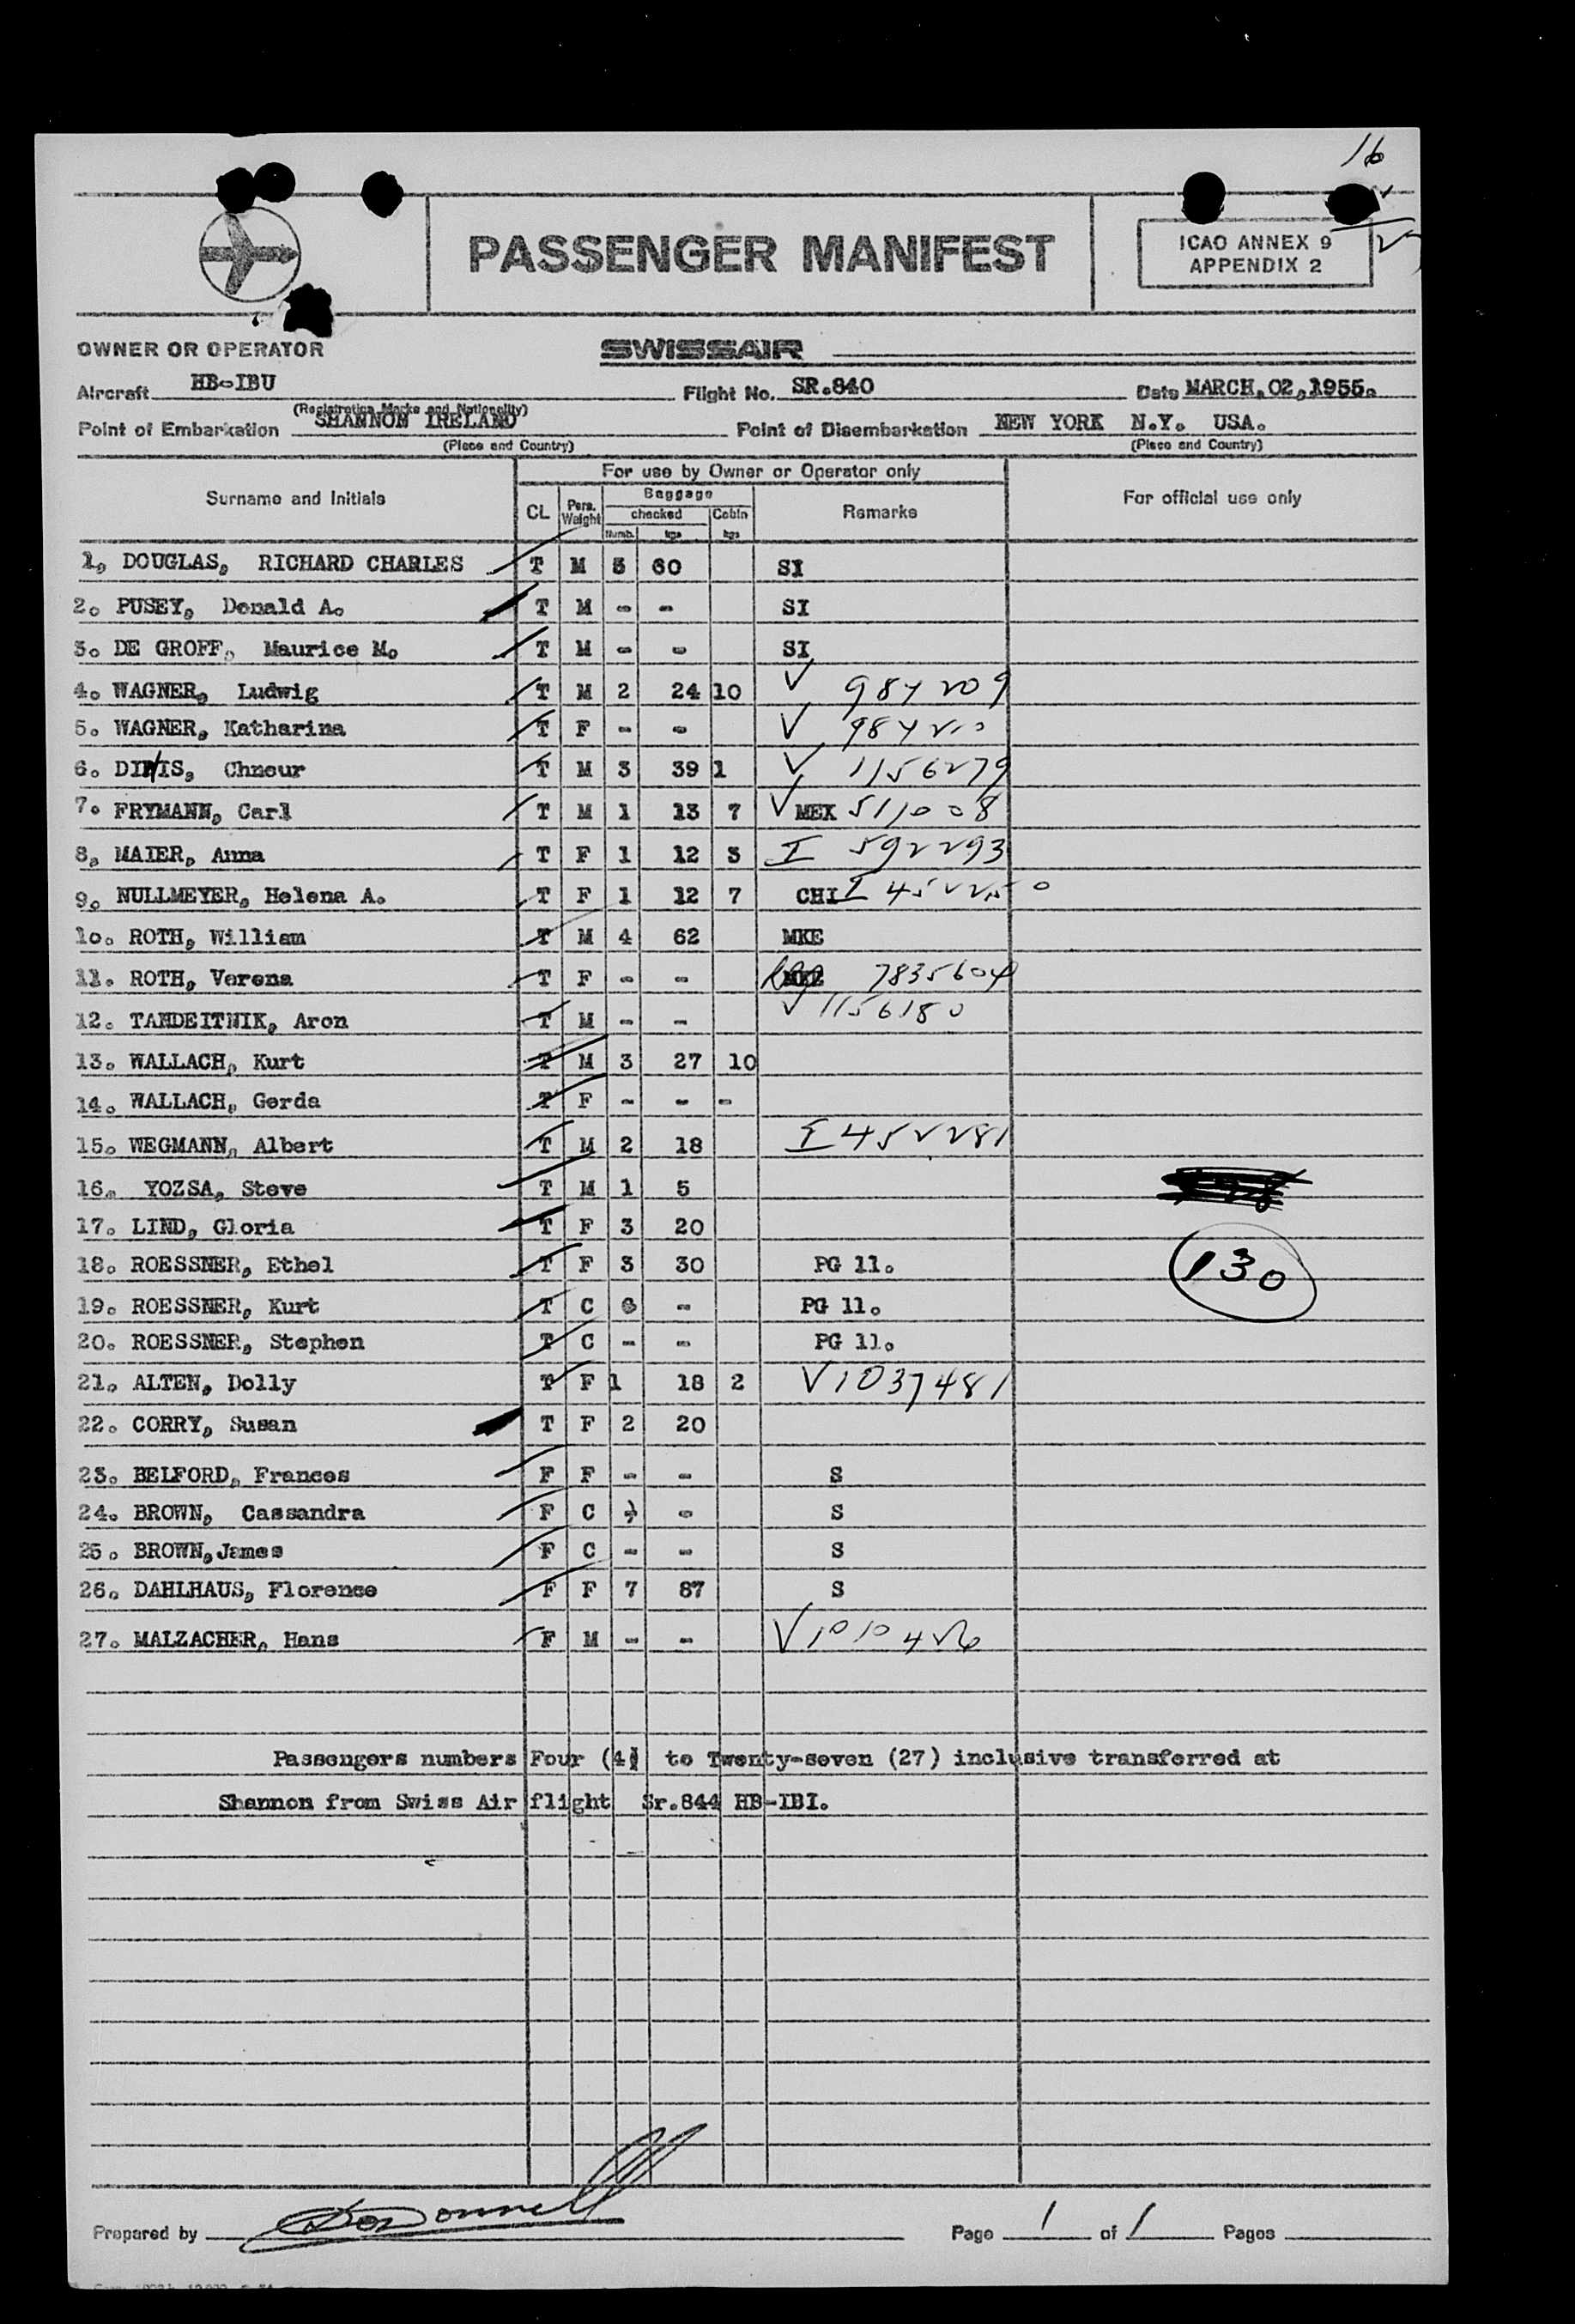 16
PASSENGER MANIFEST
ICAO ANNEX 9
APPENDIX 2
OWNER OR OPERATOR SWISSAIR
Aircraft HB-IBU Flight No. SR.840 Date MARCH.02.1955.
(Registration Marks and Nationality)
Point of Embarkation SHANNON IRELAND Point of Disembarkation NEW YORK N.Y. USA.
(Place and Country) (Place and Country)
For use by Owner or Operator only
Surname and Initials CL Pers. Weight Baggage checked Numb. kgs Cabin kgs Remarks For official use only
1, DOUGLAS, RICHARD CHARLES T M 3 60 SI
2. PUSEY, Donald A. T M - - SI
3. DE GROFF, Maurice M. T M - - SI
4. WAGNER, Ludwig T M 2 24 10 V 984209
5. WAGNER, Katharina T F - - V 984210
6. DINIS, Chneur T M 3 39 1 V 1156279
7. FRYMANN, Carl T M 1 13 7 V MEX 511008
8, MAIER, Anna T F 1 12 3 I 592293
9. NULLMEYER, Helena A. T F 1 12 7 CHI I 452250
10. ROTH, William T M 4 62 MKE
11. ROTH, Verena T F - - MKE 7835604
12. TANDEITNIK, Aron T M - - V 1156180
13. WALLACH, Kurt T M 3 27 10
14. WALLACH, Gerda T F - - -
15. WEGMANN, Albert T M 2 18 I 452281
16. YOZSA, Steve T M 1 5
17. LIND, Gloria T F 3 20
18. ROESSNER, Ethel T F 3 30 PG 11. 130
19. ROESSNER, Kurt T C - PG 11.
20. ROESSNER, Stephen T C - - PG 11.
21. ALTEN, Dolly T F 1 18 2 V 1037481
22. CORRY, Susan T F 2 20
23. BELFORD, Frances F F - - S
24. BROWN, Cassandra F C - S
25. BROWN, James F C - - S
26. DAHLHAUS, Florence F F 7 87 S
27. MALZACHER, Hans F M - - V 1010426
Passengers numbers Four (4) to Twenty-seven (27) inclusive transferred at
Shannon from Swiss Air flight Sr.844 HB-IBI.
Prepared by O'Donnell Page 1 of 1 Pages